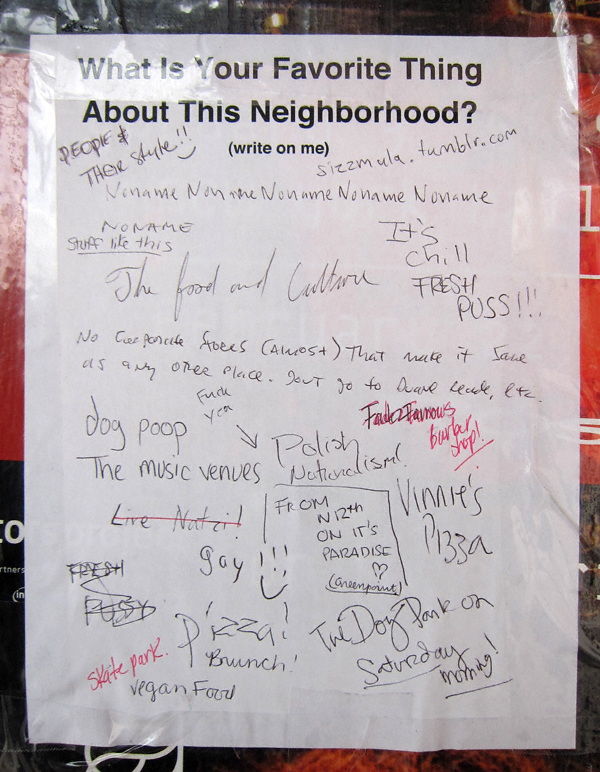 What Is Your Favorite Thing
About This Neighborhood?
(write on me)
PEOPLE &
THEIR STYLE!!
sizzmula.tumblr.com
Noname Noname Noname Noname Noname
NONAME
Stuff like this
It's
chill
FRESH
PUSS!!!
The food and Culture
No Corporate stores (Almost) That make it same
as any other place. Don't go to Duane Reade, etc.
Fuck
yea
dog poop
The music venues
Polish
Nationalism!
Fade 2 Famous
Barber
shop!
Live Natzi!
gay !!!
FROM
N12th
ON IT'S
PARADISE
(Greenpoint)
VINNIE'S
PIZZA
FRESH
PUSSY
Pizza!
Brunch!
The Dog Park on
Saturday
morning!
skate park.
vegan Food
to
artners
(in
1
s